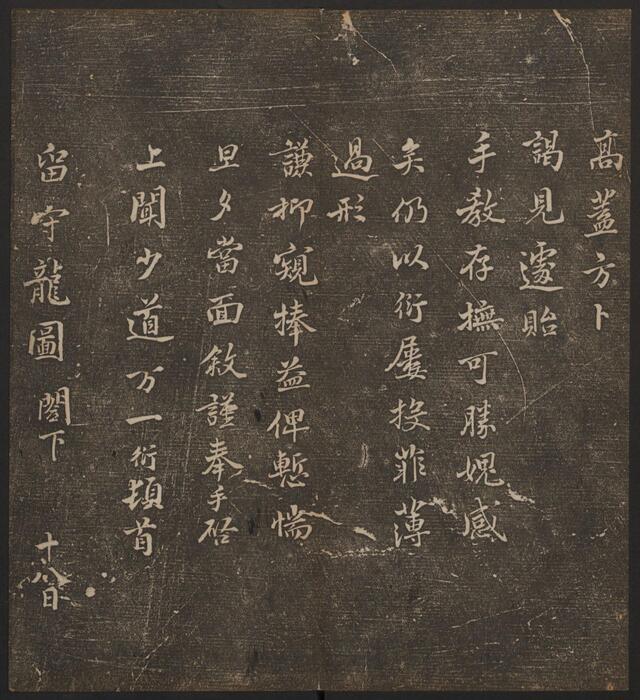 高蓋方卜
謁見遽貽
手教存撫可勝媿感
矣仍以衍屢投菲薄
過形
謙抑窺捧益俾慙惴
旦夕當面敘謹奉手啓
上聞少道万一衍頓首
留守龍圖閣下 十八日